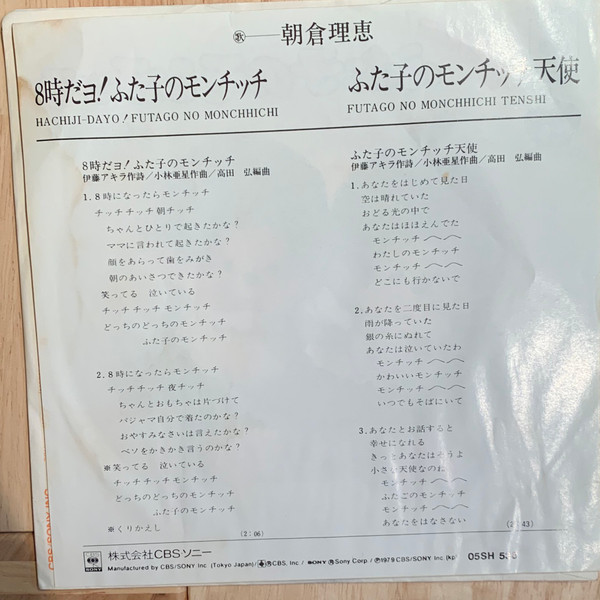 歌——朝倉理恵
8時だヨ!ふた子のモンチッチ
HACHIJI-DAYO! FUTAGO NO MONCHHICHI
8時だヨ!ふた子のモンチッチ
伊藤アキラ作詩/小林亜星作曲/高田 弘編曲
1. 8時になったらモンチッチ
チッチ チッチ 朝チッチ
ちゃんとひとりで起きたかな?
ママに言われて起きたかな?
顔をあらって歯をみがき
朝のあいさつできたかな?
笑ってる 泣いている
チッチ チッチ モンチッチ
どっちのどっちのモンチッチ
ふた子のモンチッチ
2. 8時になったらモンチッチ
チッチ チッチ 夜チッチ
ちゃんとおもちゃは片づけて
パジャマ自分で着たのかな?
おやすみなさいは言えたかな?
ベソをかきかき言うのかな?
※笑ってる 泣いている
チッチ チッチ モンチッチ
どっちのどっちのモンチッチ
ふた子のモンチッチ
※くりかえし
(2:06)
ふた子のモンチッチ天使
FUTAGO NO MONCHHICHI TENSHI
ふた子のモンチッチ天使
伊藤アキラ作詩/小林亜星作曲/高田 弘編曲
1. あなたをはじめて見た日
空は晴れていた
おどる光の中で
あなたはほほえんでた
モンチッチ へ〜へ〜
わたしのモンチッチ
モンチッチ へ〜へ〜
どこにも行かないで
2. あなたを二度目に見た日
雨が降っていた
銀の糸にぬれて
あなたは泣いていたわ
モンチッチ へ〜へ〜
かわいいモンチッチ
モンチッチ へ〜へ〜
いつでもそばにいて
3. あなたとお話すると
幸せになれる
きっとあなたはそうよ
小さな天使なのね
モンチッチ へ〜へ〜
ふたごのモンチッチ
モンチッチ へ〜へ〜
あなたをはなさない
(2:43)
SONY
株式会社CBSソニー
Manufactured by CBS/SONY Inc (Tokyo Japan)/ Ⓡ CBS, Inc./ SONY Ⓡ Sony Corp / Ⓟ 1979 CBS/SONY Inc (kp)
05SH 53
CBS/SONY INC